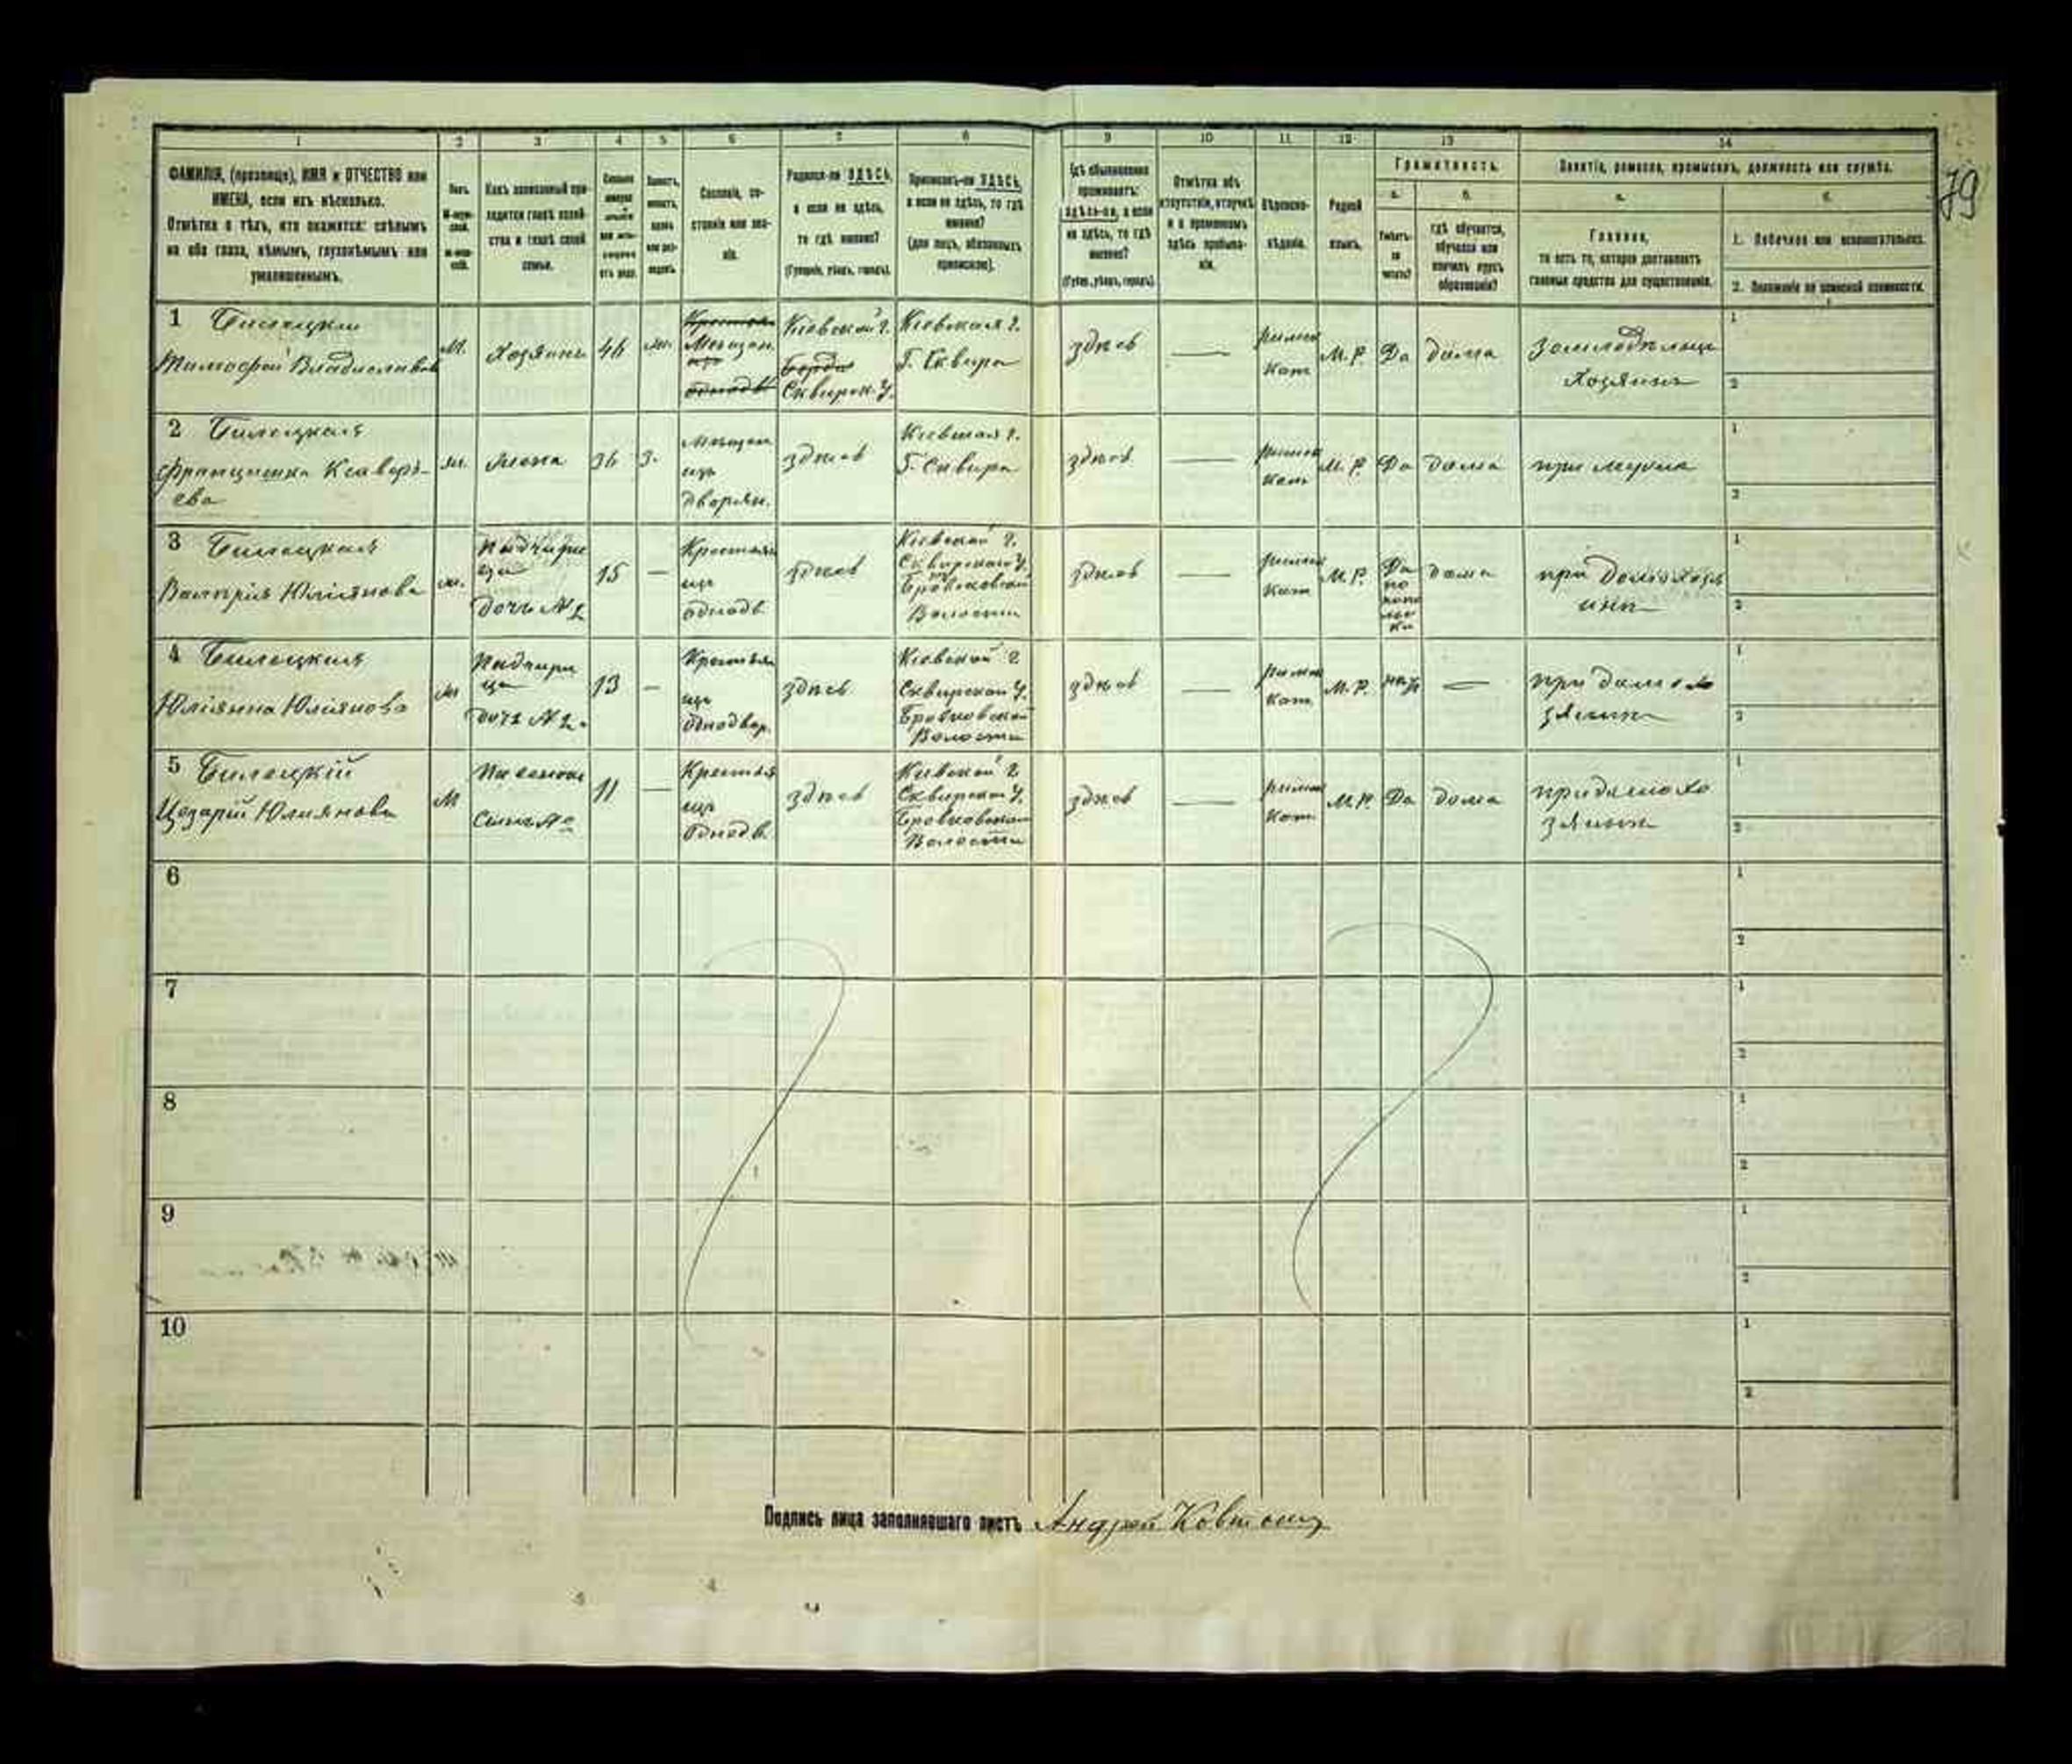 1 2 3 4 5 6 7 8 9 10 11 12 13 14
ФАМИЛІЯ, (прозвище), ИМЯ и ОТЧЕСТВО или
ИМЕНА, если ихъ нѣсколько.
Отмѣтка о тѣхъ, кто окажется: слѣпымъ
на оба глаза, нѣмымъ, глухонѣмымъ или
умалишеннымъ.
Полъ.
Какъ записанный при-
ходится главѣ хозяй-
ства и главѣ своей
семьи.
Сословіе, со-
стояніе или зва-
ніе.
Родился-ли ЗДѢСЬ,
а если не здѣсь,
то гдѣ именно?
(Губернія, уѣздъ, городъ).
Приписанъ-ли ЗДѢСЬ,
а если не здѣсь, то гдѣ
именно?
(для лицъ, обязанныхъ
припискою).
Гдѣ обыкновенно
проживаетъ:
здѣсь-ли, а если
не здѣсь, то гдѣ
именно?
(Губ., уѣздъ, городъ).
Отмѣтка объ
отсутствіи, отлучкѣ
и о временномъ
здѣсь пребыва-
ніи.
Вѣроиспо-
вѣданіе.
Родной
языкъ.
Грамотность.
а. б.
Умѣетъ-
ли
читать?
гдѣ обучается,
обучался или
кончилъ курсъ
образованія?
Занятіе, ремесло, промыселъ, должность или служба.
а.
Главное,
то есть то, которое доставляетъ
главныя средства для существованія.
б.
1. Побочное или вспомогательное.
2. Положеніе по воинской повинности.
79
1 Билецкий
Тимофей Владиславов
М. Хозяинъ 46
Мещан.
Кіевской г.
Сквирск. у.
Кіевская г.
Г. Сквира
здѣсь — Римск Кат М. Р. Да дома
Земледѣлецъ
Хозяинъ
2 Билецкая
Францишка Ксаверь-
ева
ж. жена 36 З.
Мещан
изъ
дворян.
здѣсь
Кіевская г.
Г. Сквира
здѣсь — Римск Кат М. Р. Да дома при мужѣ
3 Билецкая
Валерія Юліянова
ж.
Падчери
ца
дочь № 2
15 —
Крестьян
изъ
однодв
здѣсь
Кіевской г.
Сквирской у.
Бровковской
Волости
здѣсь — Римск Кат М. Р.
Да
по
польски
дома
при домохозя
инѣ
4 Билецкая
Юліянна Юліянова
ж
Падчери
ца
дочь № 2.
13 —
Крестьян
изъ
однодвор.
здѣсь
Кіевской г
Сквирской у.
Бровковской
Волости
здѣсь — Римск Кат М. Р. нѣтъ —
при домохо
зяинѣ
5 Билецкій
Цезарій Юлияновъ
М
Пасынок
Сынъ №
11 —
Крестья
изъ
Однодв.
здѣсь
Кіевской г
Сквирской у.
Бровковской
Волости
здѣсь — Римск Кат М. Р. Да дома
при домохо
зяинѣ
6
7
8
9
10
Подпись лица заполнявшаго листъ Андрей Ковтонюк